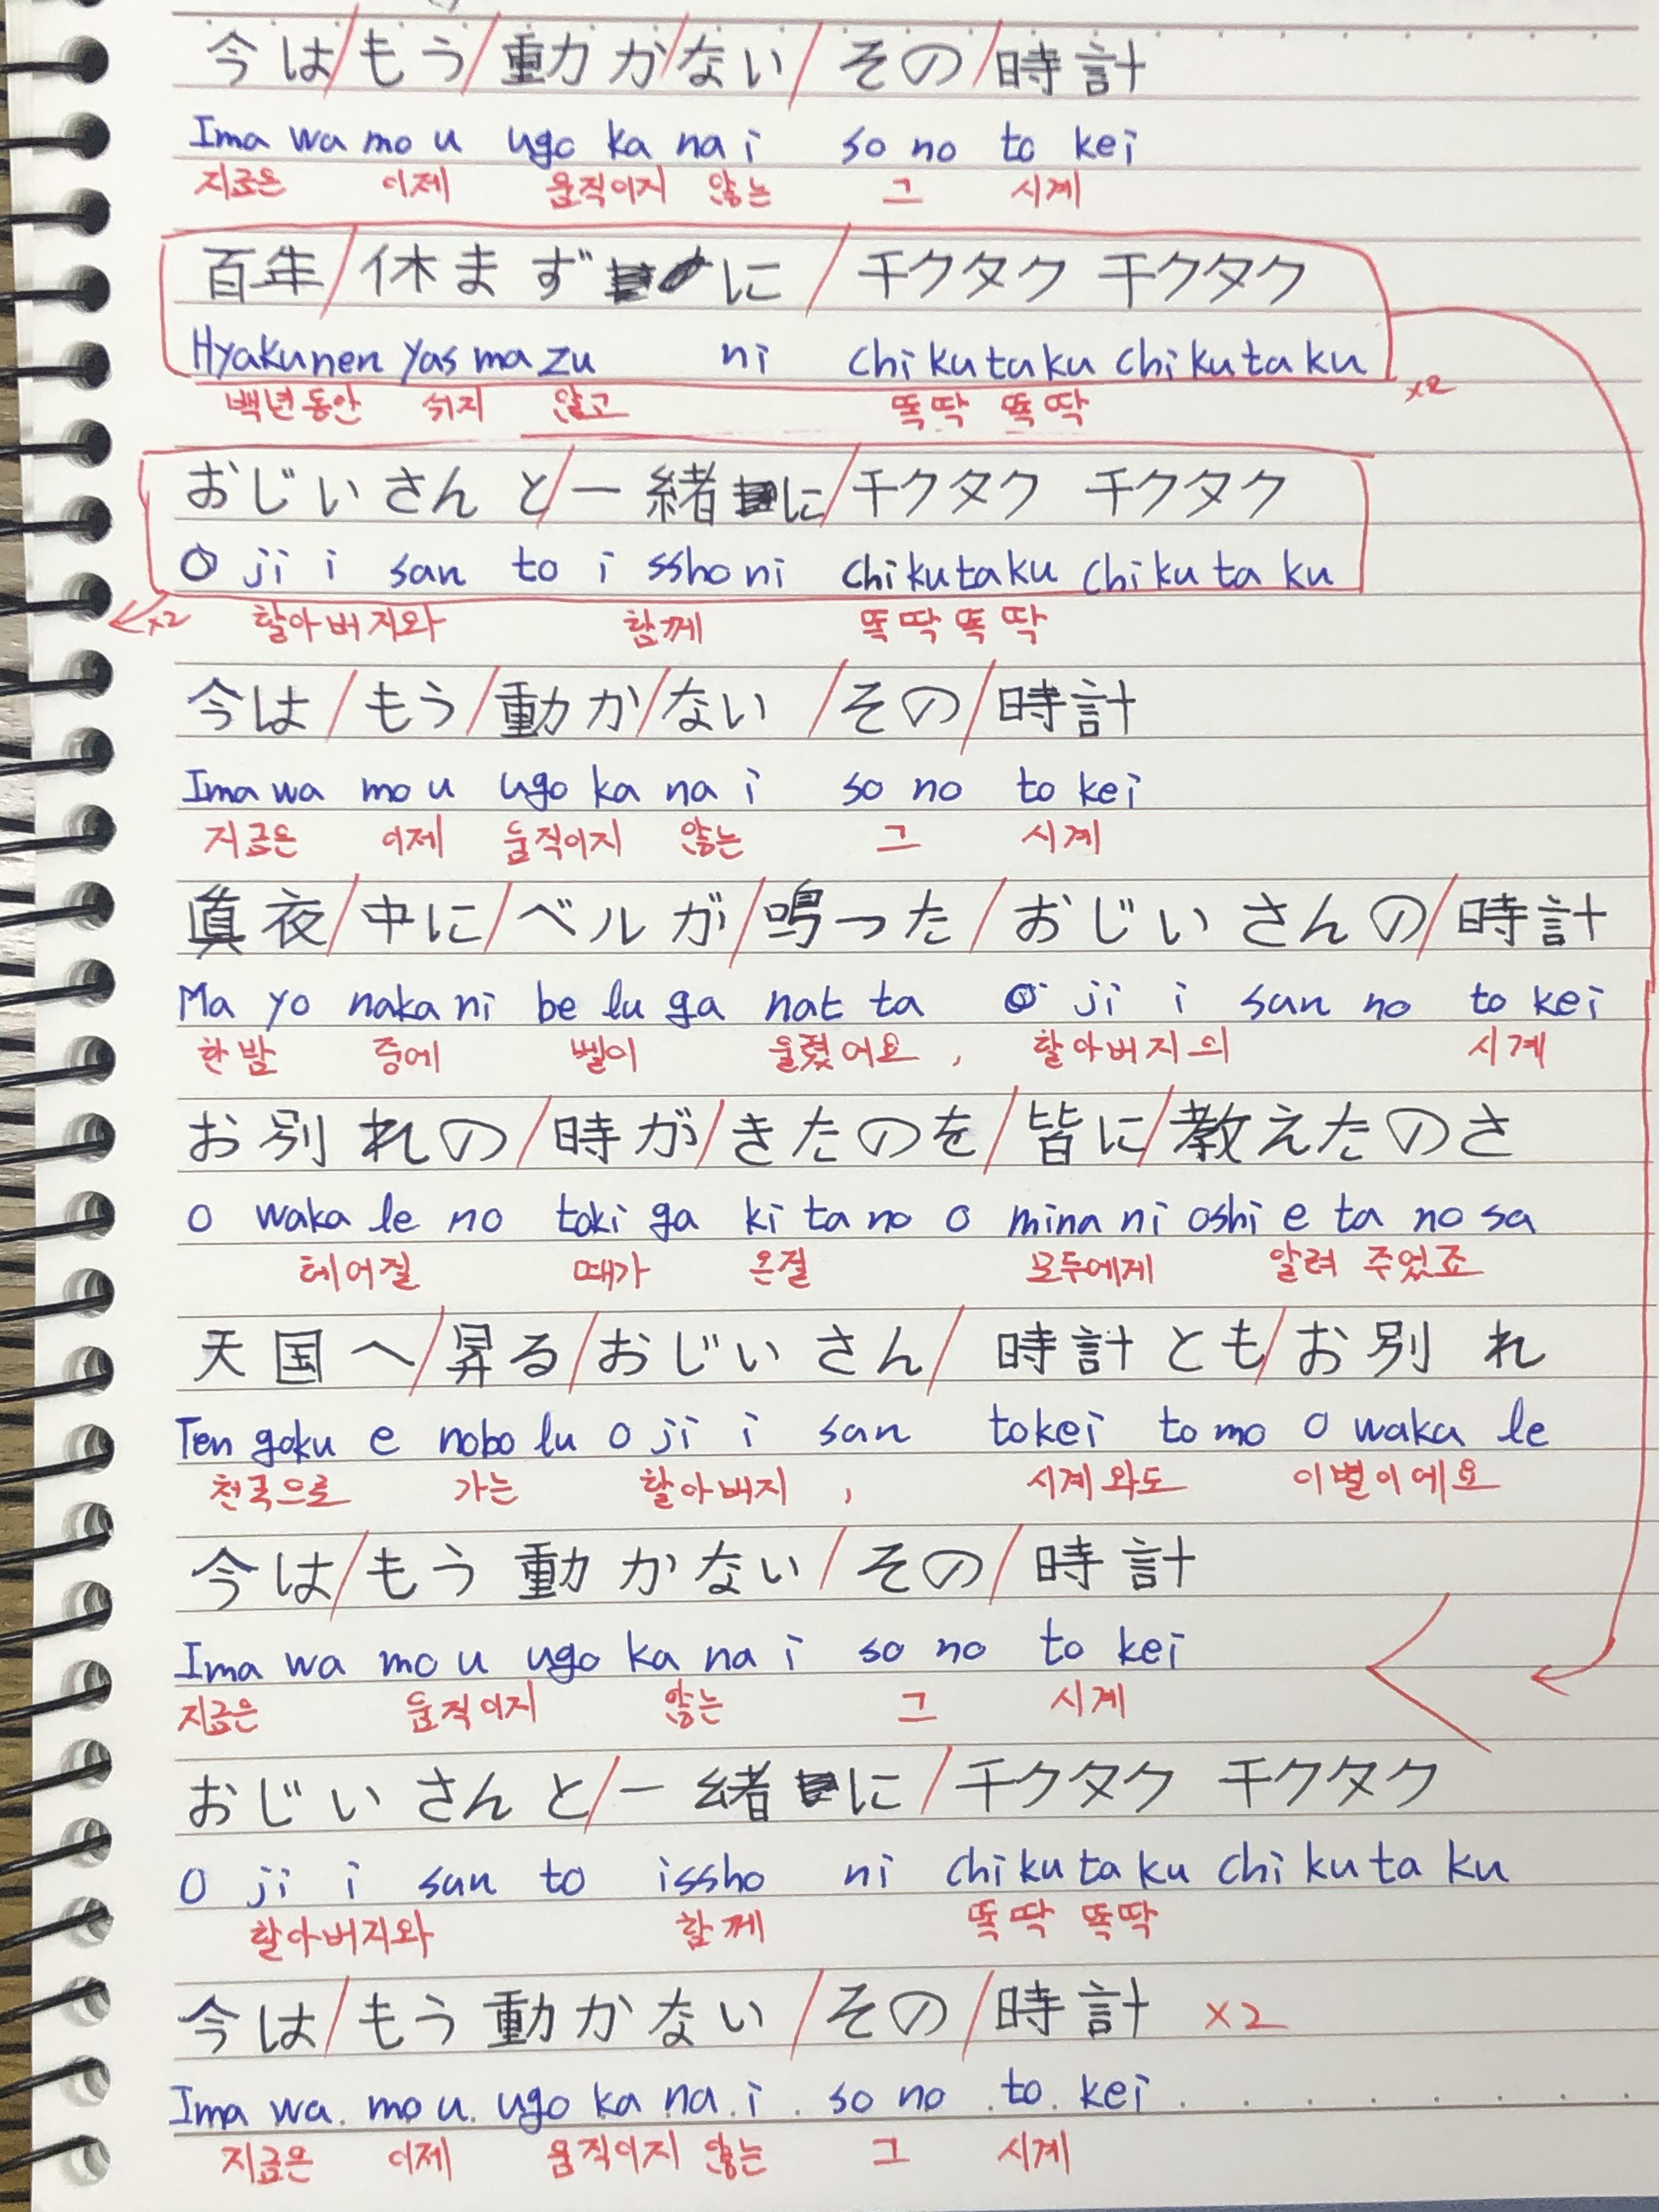 今は/もう/動か/ない/その/時計
Ima wa mo u ugo ka na i so no to kei
지금은 이제 움직이지 않는 그 시계
百年/休まずに/チクタク チクタク
Hyakunen yasmazu ni chikutaku chikutaku
x2
백년동안 쉬지 않고 똑딱 똑딱
おじいさんと/一緒に/チクタク チクタク
O ji i san to i ssho ni chikutaku chikutaku
x2 할아버지와 함께 똑딱 똑딱
今は/もう/動か/ない/その/時計
Ima wa mo u ugo ka na i so no to kei
지금은 이제 움직이지 않는 그 시계
真夜/中に/ベルが/鳴った/おじいさんの/時計
Ma yo naka ni be lu ga nat ta O ji i san no to kei
한밤 중에 벨이 울렸어요, 할아버지의 시계
お別れの/時が/きたのを/皆に/教えたのさ
O waka le no toki ga ki ta no o mina ni oshi e ta no sa
헤어질 때가 온걸 모두에게 알려 주었죠
天国へ/昇る/おじいさん/時計とも/お別れ
Ten goku e nobo lu o ji i san tokei to mo o waka le
천국으로 가는 할아버지, 시계와도 이별이에요
今は/もう動かない/その/時計
Ima wa mo u ugo ka na i so no to kei
지금은 움직이지 않는 그 시계
おじいさんと/一緒に/チクタク チクタク
O ji i san to issho ni chikutaku chikutaku
할아버지와 함께 똑딱 똑딱
今は/もう動かない/その/時計 x2
Ima wa mo u ugo ka na i so no to kei
지금은 이제 움직이지 않는 그 시계